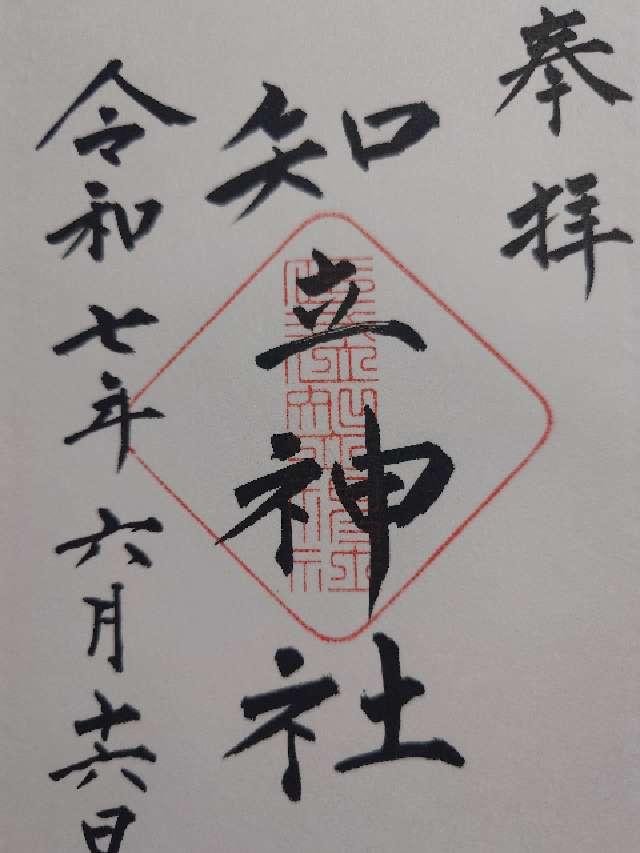 奉拝
知立神社
令和七年六月十六日